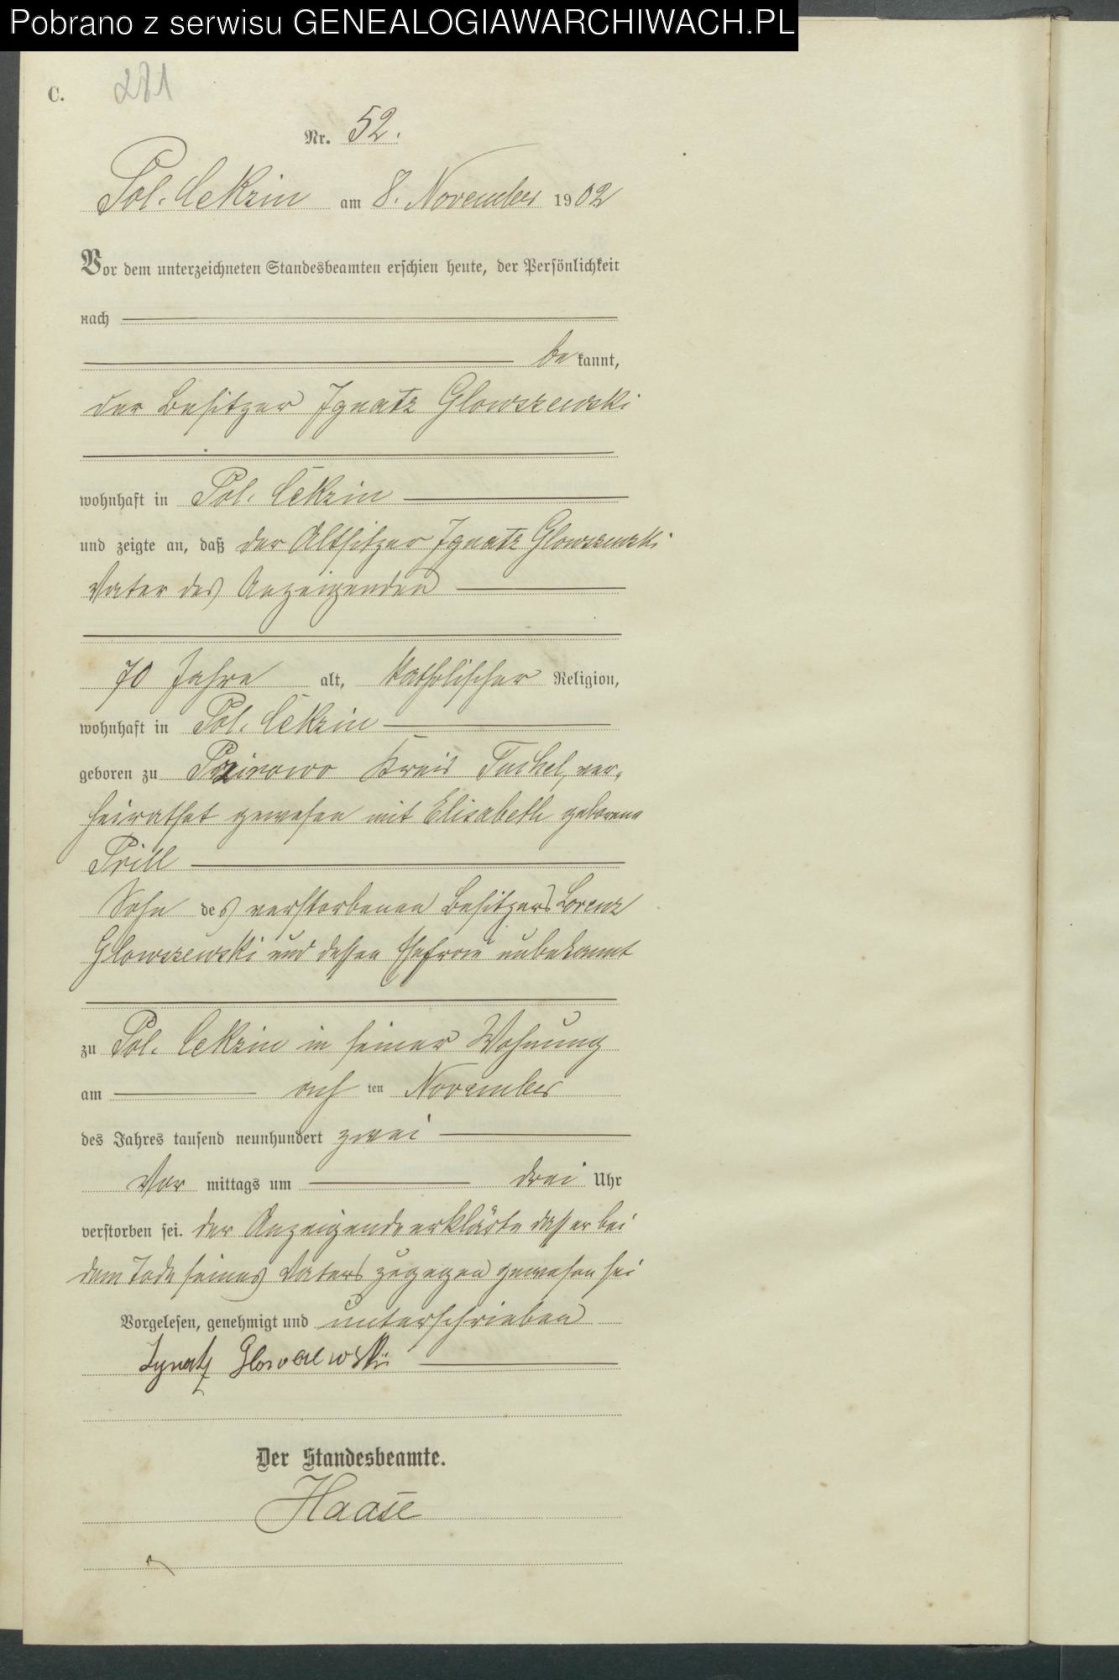 Pobrano z serwisu GENEALOGIAWARCHIWACH.PL
C. 281
Nr. 52.
Pol. Cekzin am 8. November 1902
Vor dem unterzeichneten Standesbeamten erschien heute, der Persönlichkeit
nach
bekannt,
der Besitzer Ignatz Glowszewski
wohnhaft in Pol. Cekzin
und zeigte an, daß der Altsitzer Ignatz Glowszewski
Vater des Anzeigenden
70 Jahre alt, katholischer Religion,
wohnhaft in Pol. Cekzin
geboren zu Kreis Tuchel, ver-
heirathet gewesen mit Elisabeth geborene
Prill
Sohn des verstorbenen Besitzers Lorenz
Glowszewski und dessen Ehefrau unbekannt
zu Pol. Cekzin in seiner Wohnung
am acht ten November
des Jahres tausend neunhundert zwei
Vor mittags um drei Uhr
verstorben sei. der Anzeigende erklärte daß er bei
dem Tode seines Vaters zugegen gewesen sei
Vorgelesen, genehmigt und unterschrieben
Ignatz
Der Standesbeamte.
Haase